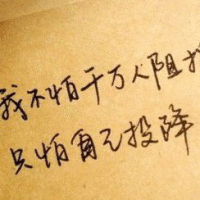 我不怕千万人阻
只怕自己投降